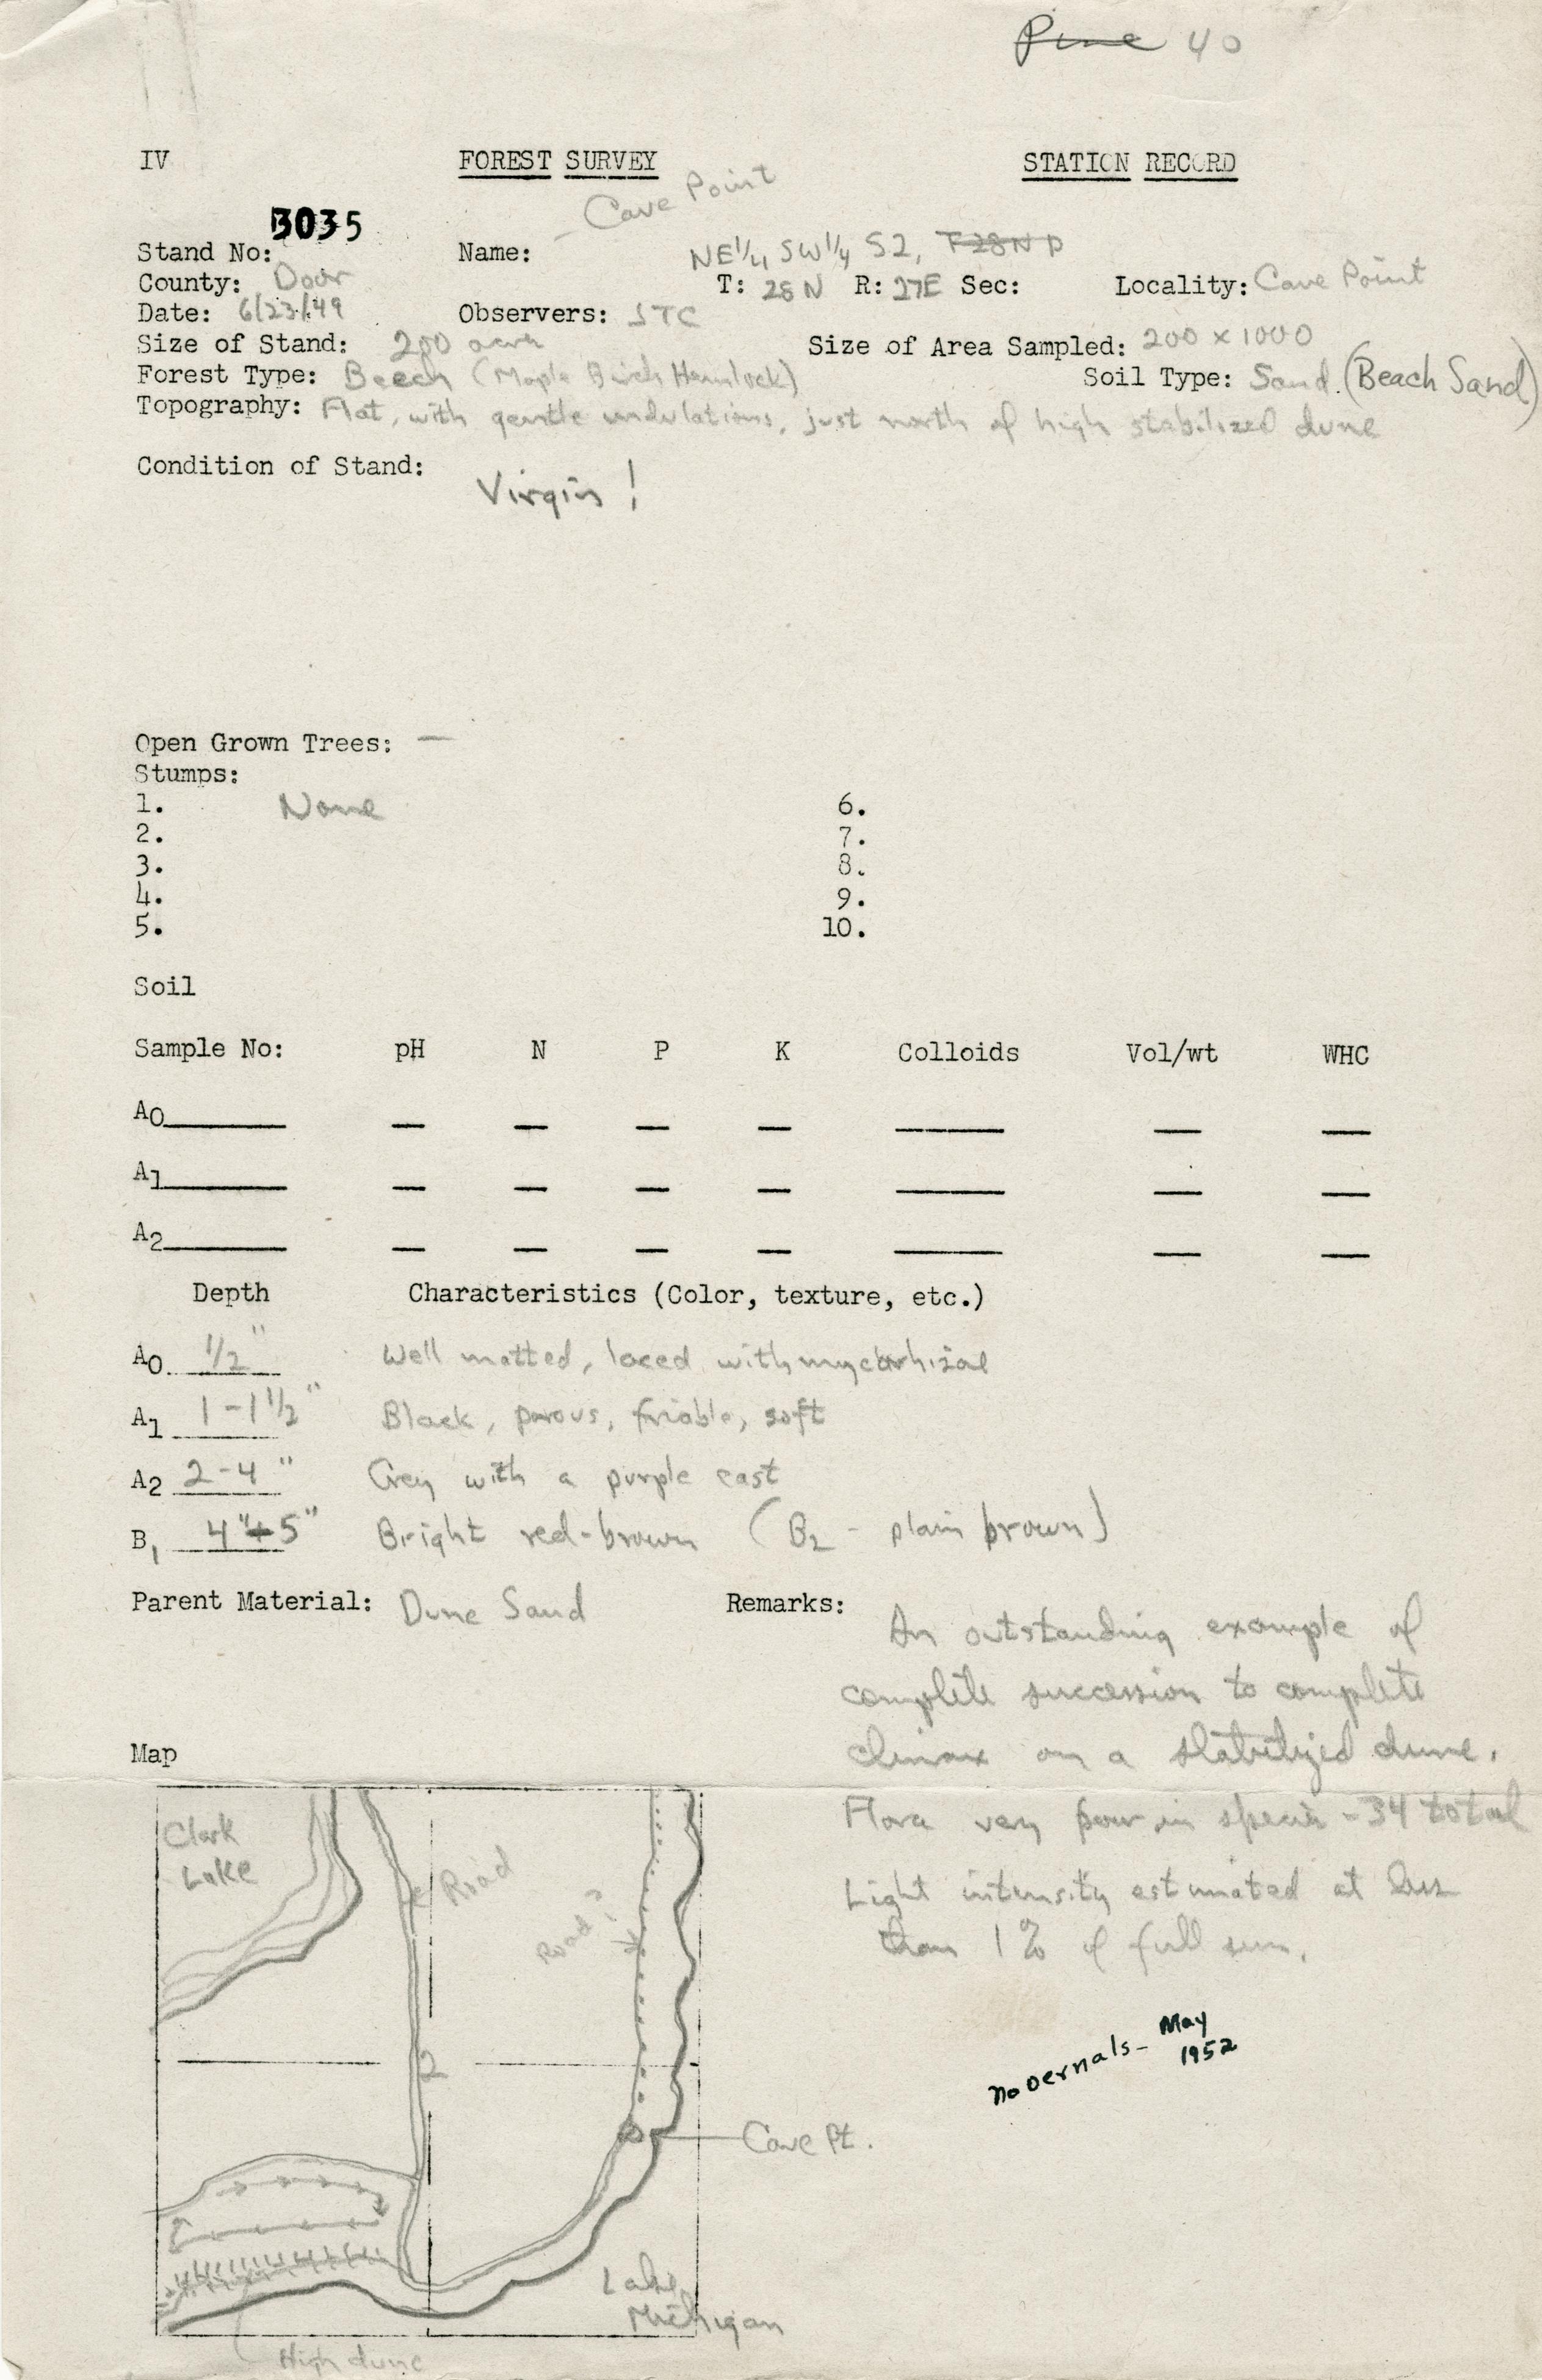 Pine 40
IV FOREST SURVEY STATION RECORD
3035 Cave Point
Stand No: Name: NE1/4, SW1/4 S2, T28N
County: Door T: 28N R: 27E Sec: Locality: Cave Point
Date: 6/23/49 Observers: JTC
Size of Stand: 200 acres Size of Area Sampled: 200 x 1000
Forest Type: Beech (Maple Birch Hemlock) Soil Type: Sand. (Beach Sand)
Topography: Flat, with gentle undulations, just north of high stabilized dune
Condition of Stand:
Virgin!
Open Grown Trees: —
Stumps:
1. None 6.
2. 7.
3. 8.
4. 9.
5. 10.
Soil
Sample No: pH N P K Colloids Vol/wt WHC
A0
A1
A2
Depth Characteristics (Color, texture, etc.)
A0 1/2" Well matted, laced with mycorhizae
A1 1-1 1/2" Black, porous, friable, soft
A2 2-4" Grey with a purple cast
B1 4"+5" Bright red-brown (B2 - plain brown)
Parent Material: Dune Sand Remarks:
An outstanding example of
complete succession to complete
climax on a stabilized dune.
Flora very poor in species - 34 total
Light intensity estimated at less
than 1% of full sun.
no vernals - May
1952
Map
Clark
Lake
Road
Road?
2
Cave Pt.
Lake
Michigan
High dune